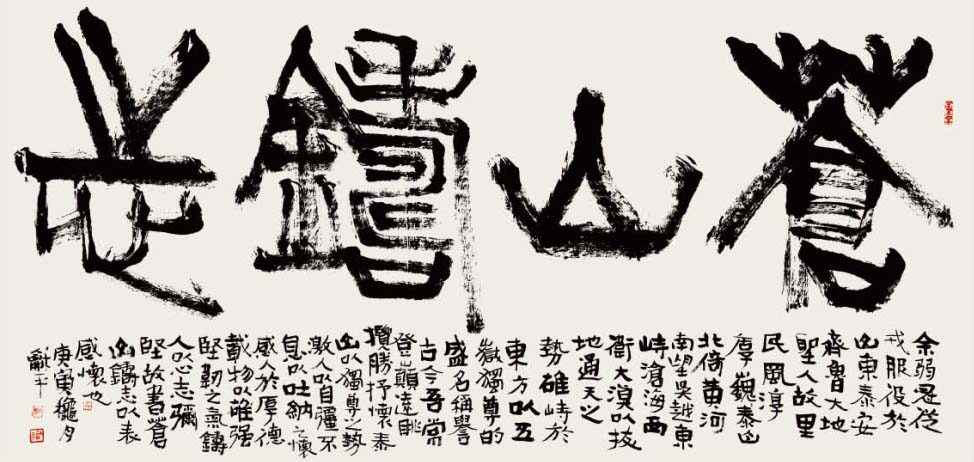 蒼山鑄志
余弱冠從
戎服役於
山東泰安
齊魯大地
聖人故里
民風淳
厚巍泰山
北倚黄河
南望吳越東
峙滄海西
衝大漠以拔
地通天之
勢雄峙於
東方以五
嶽獨尊的
盛名稱譽
古今吾常
登巔遠眺
攬勝抒懷泰
山以獨尊之勢
激人以自彊不
息以吐納之懷
感人於厚德
載物以雄强
堅韌之氣鑄
人心志彌
堅故書蒼
山鑄志以表
感懷也
庚寅龝月
龢平